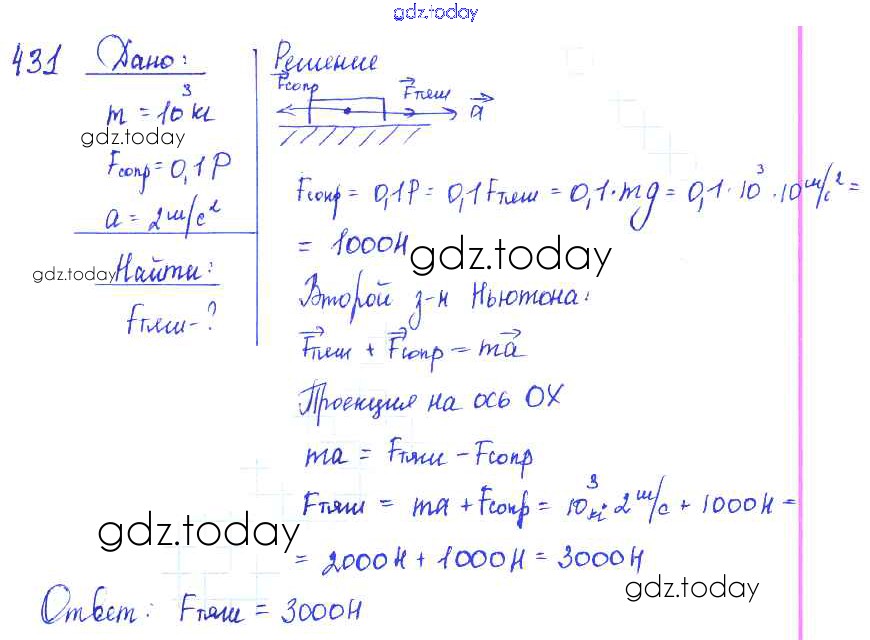 gdz.today
431 Дано:
m = 10³ кг
gdz.today
Fсопр = 0,1P
a = 2 м/с²
gdz.today
Найти:
Fтяги - ?
Решение
F⃗сопр F⃗тяги a⃗
Fсопр = 0,1P = 0,1Fтяж = 0,1·mg = 0,1·10³·10 м/с² =
= 1000Н
gdz.today
Второй з-н Ньютона:
F⃗тяги + F⃗сопр = ma⃗
Проекция на ось OX
ma = Fтяги - Fсопр
Fтяги = ma + Fсопр = 10³ кг · 2 м/с + 1000Н =
gdz.today
= 2000Н + 1000Н = 3000Н
gdz.today
Ответ: Fтяги = 3000Н